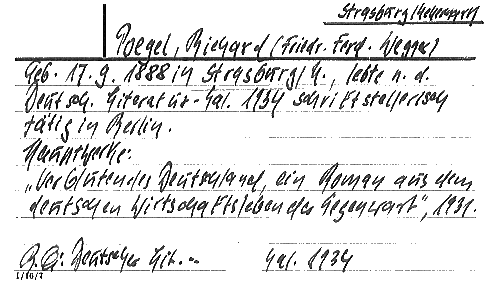 Strasburg/Uckermark
Poegel, Richard (Friedr. Ferd. Wegger)
Geb. 17.9.1888 in Strasburg/U., lebte n. d.
Deutsch. Literatur-Kal. 1934 schriftstellerisch
tätig in Berlin.
Hauptwerke:
„Verblutendes Deutschland, ein Roman aus dem
deutschen Wirtschaftsleben der Gegenwart", 1931.
Deutscher Lit.-- Kal. 1934
1/10/7